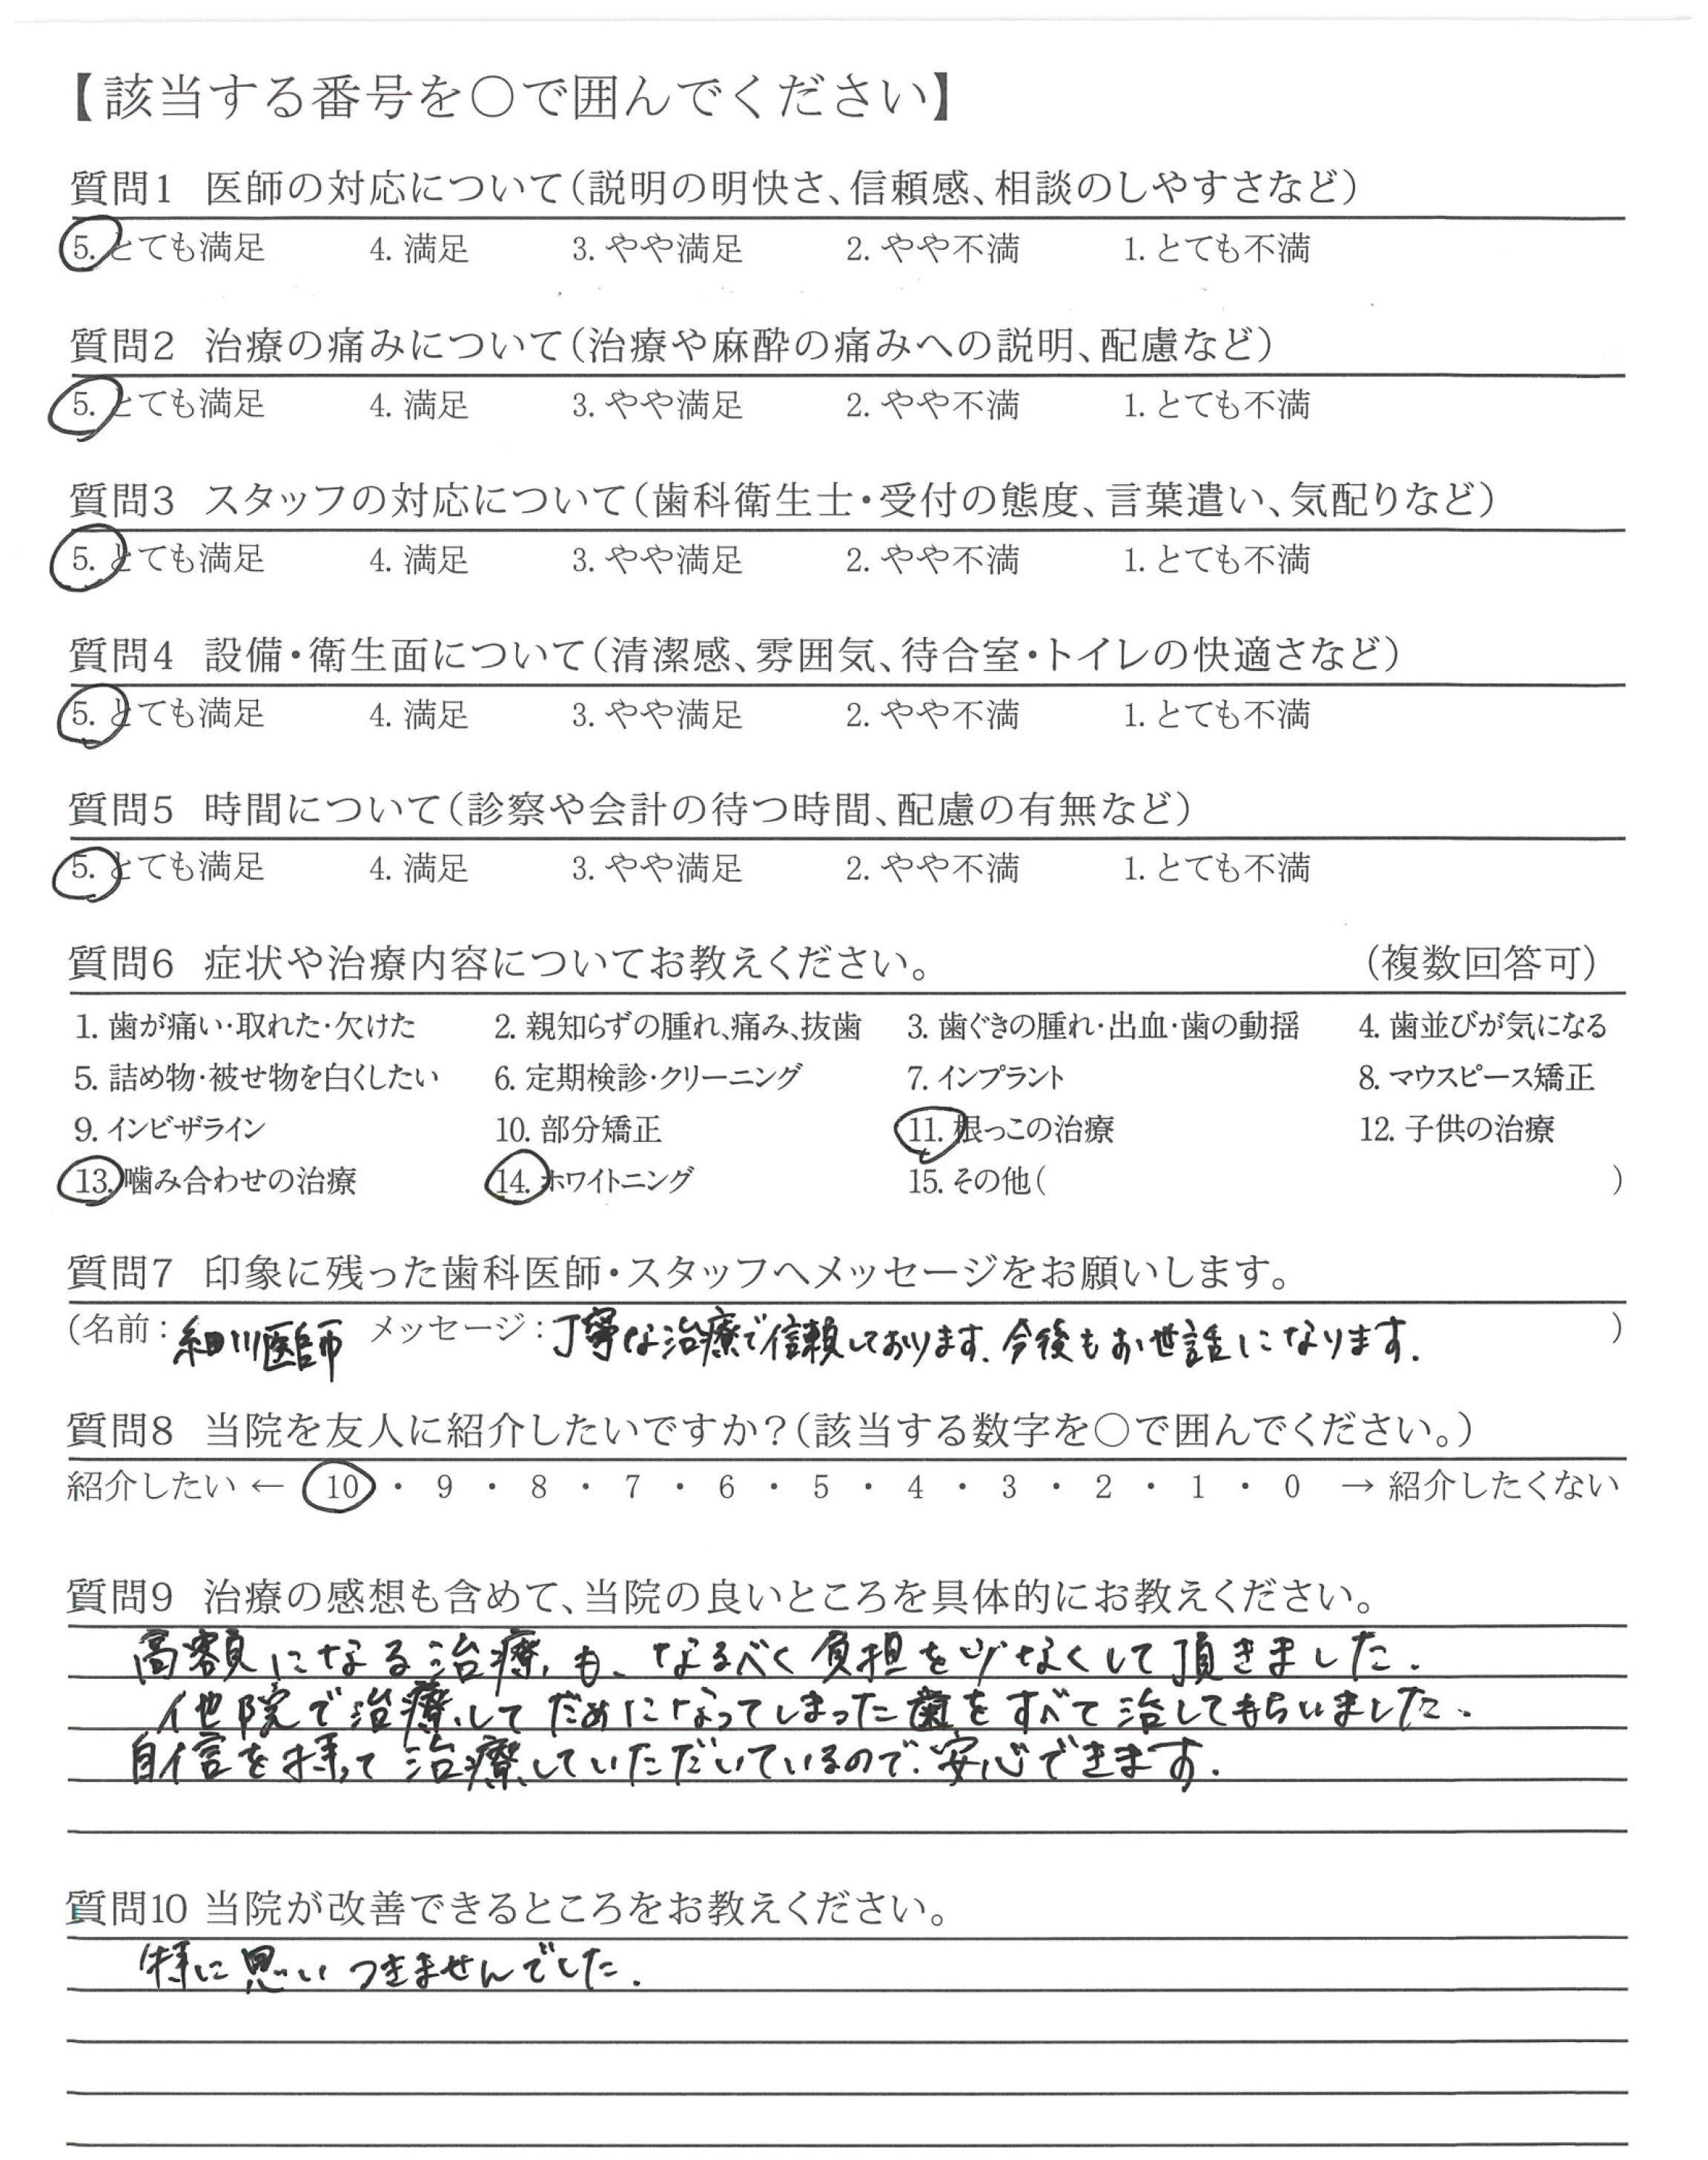 【該当する番号を○で囲んでください】
質問1 医師の対応について(説明の明快さ、信頼感、相談のしやすさなど)
5. とても満足 4. 満足 3. やや満足 2. やや不満 1. とても不満
質問2 治療の痛みについて(治療や麻酔の痛みへの説明、配慮など)
5. とても満足 4. 満足 3. やや満足 2. やや不満 1. とても不満
質問3 スタッフの対応について(歯科衛生士・受付の態度、言葉遣い、気配りなど)
5. とても満足 4. 満足 3. やや満足 2. やや不満 1. とても不満
質問4 設備・衛生面について(清潔感、雰囲気、待合室・トイレの快適さなど)
5. とても満足 4. 満足 3. やや満足 2. やや不満 1. とても不満
質問5 時間について(診察や会計の待つ時間、配慮の有無など)
5. とても満足 4. 満足 3. やや満足 2. やや不満 1. とても不満
質問6 症状や治療内容についてお教えください。 (複数回答可)
1. 歯が痛い・取れた・欠けた 2. 親知らずの腫れ、痛み、抜歯 3. 歯ぐきの腫れ・出血・歯の動揺 4. 歯並びが気になる
5. 詰め物・被せ物を白くしたい 6. 定期検診・クリーニング 7. インプラント 8. マウスピース矯正
9. インビザライン 10. 部分矯正 11. 根っこの治療 12. 子供の治療
13. 噛み合わせの治療 14. ホワイトニング 15. その他( )
質問7 印象に残った歯科医師・スタッフへメッセージをお願いします。
(名前:細川医師 メッセージ:丁寧な治療で信頼しております。今後もお世話になります。 )
質問8 当院を友人に紹介したいですか?(該当する数字を○で囲んでください。)
紹介したい ← 10 ・ 9 ・ 8 ・ 7 ・ 6 ・ 5 ・ 4 ・ 3 ・ 2 ・ 1 ・ 0 → 紹介したくない
質問9 治療の感想も含めて、当院の良いところを具体的にお教えください。
高額になる治療も、なるべく負担を少なくして頂きました。
他院で治療してだめになってしまった歯をすべて治してもらいました。
自信を持って治療していただいているので、安心できます。
質問10 当院が改善できるところをお教えください。
特に思いつきませんでした。